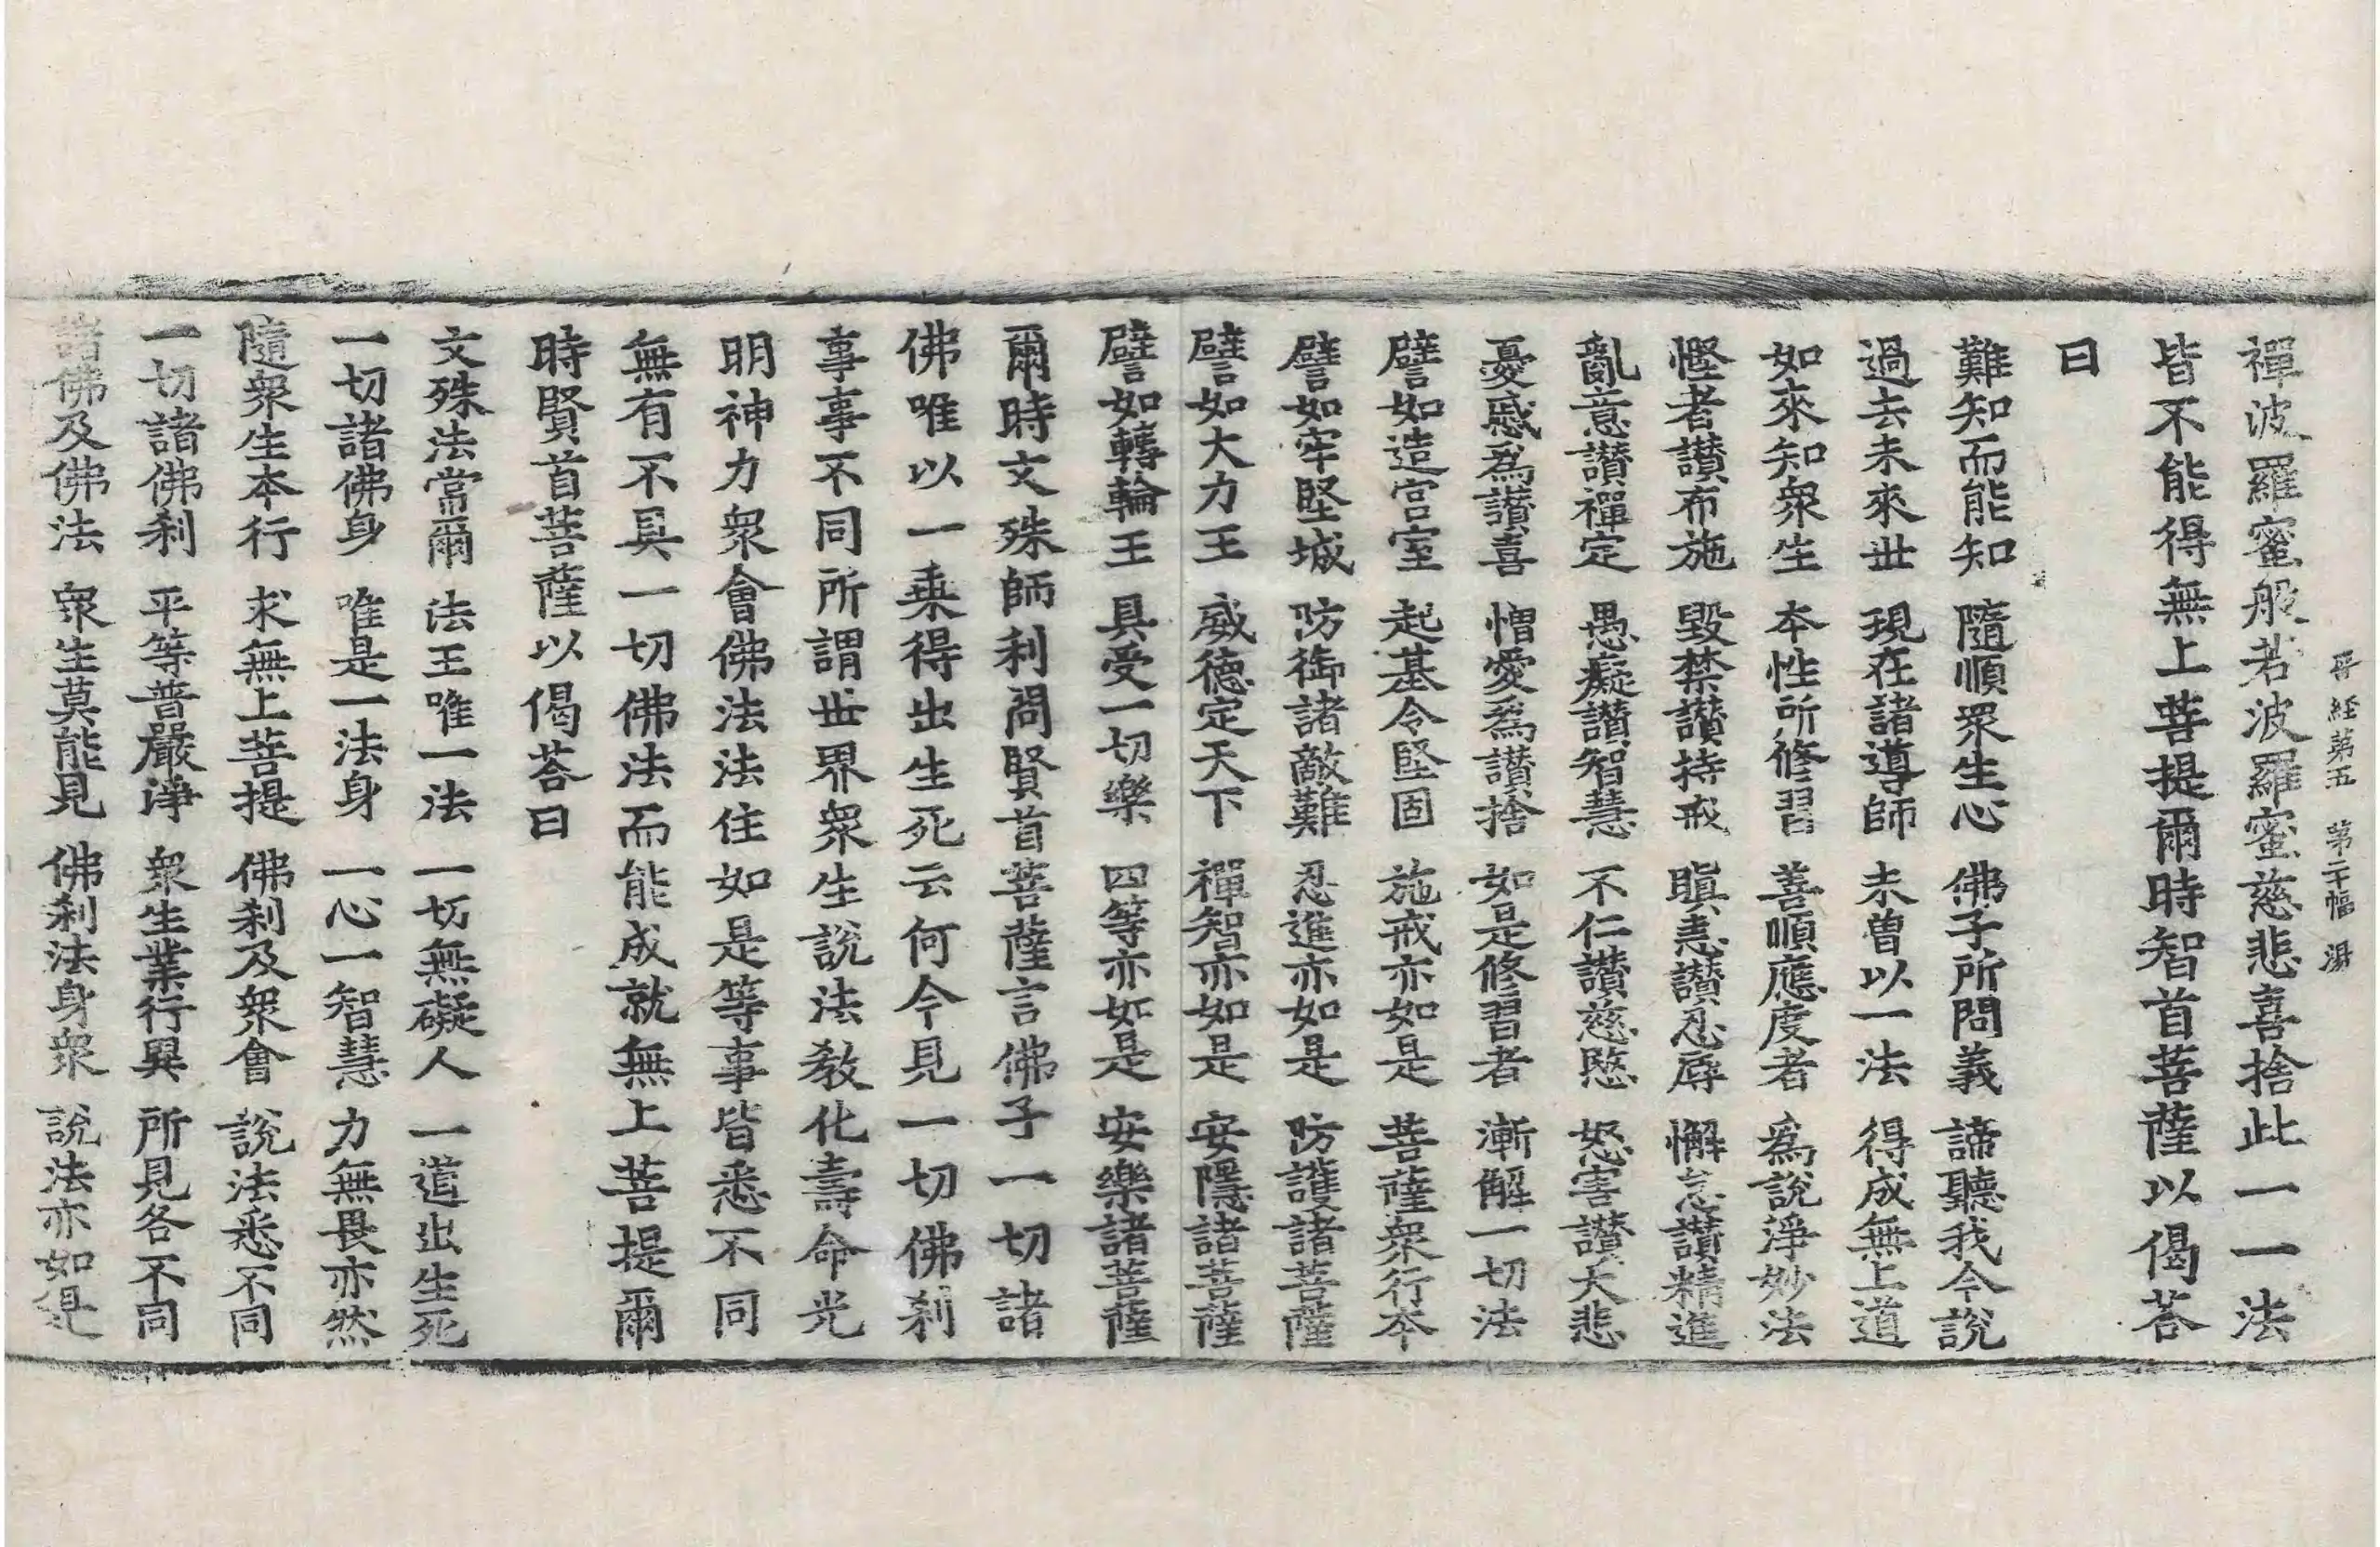 晉經第五 第二十幅 湯
禪波羅蜜般若波羅蜜慈悲喜捨此一一法
皆不能得無上菩提爾時智首菩薩以偈荅
曰
難知而能知 隨順眾生心 佛子所問義 諦聽我今說
過去未來世 現在諸導師 未曽以一法 得成無上道
如來知眾生 本性所修習 善順應度者 為說淨妙法
慳者讃布施 毀禁讃持戒 瞋恚讃忍辱 懈怠讃精進
亂意讃禪定 愚癡讃智慧 不仁讃慈愍 怒害讃大悲
憂慼為讃喜 憎愛為讃捨 如是修習者 漸解一切法
譬如造宫室 起基令堅固 施戒亦如是 菩薩眾行本
譬如牢堅城 防御諸敵難 忍進亦如是 防護諸菩薩
譬如大力王 威德定天下 禪智亦如是 安隱諸菩薩
譬如轉輪王 具受一切樂 四等亦如是 安樂諸菩薩
爾時文殊師利問賢首菩薩言佛子一切諸
佛唯以一乗得出生死云何今見一切佛刹
事事不同所謂世界眾生說法教化壽命光
明神力眾會佛法法住如是等事皆悉不同
無有不具一切佛法而能成就無上菩提爾
時賢首菩薩以偈荅曰
文殊法常爾 法王唯一法 一切無礙人 一道出生死
一切諸佛身 唯是一法身 一心一智慧 力無畏亦然
隨眾生本行 求無上菩提 佛刹及眾會 說法悉不同
一切諸佛刹 平等普嚴淨 眾生業行異 所見各不同
諸佛及佛法 眾生莫能見 佛刹法身眾 說法亦如是